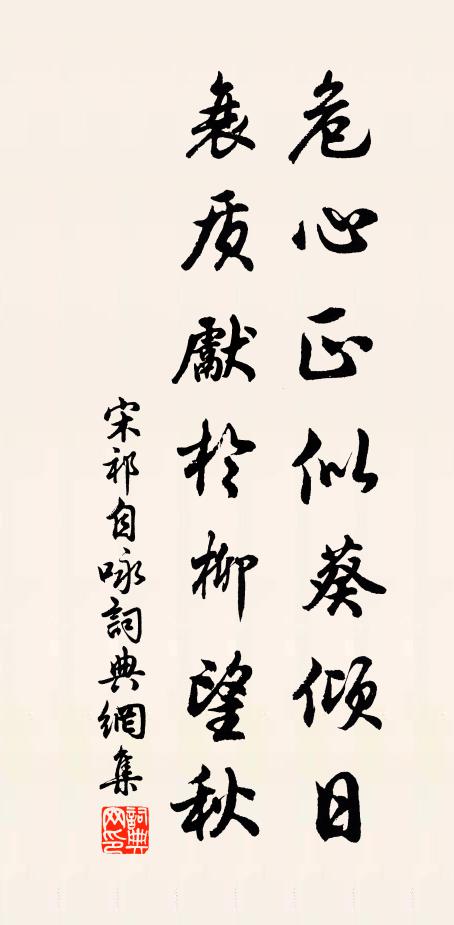 危心正似葵傾日
衰质獻於柳望秋
宋祁自詠詞典網集
詞典
网印